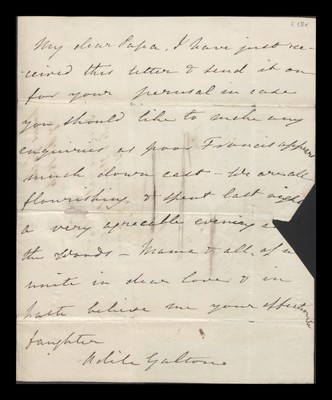 My dear Papa, I have just re-
ceived this letter & send it on
for your perusal in case
you should like to make any
enquiries as poor Francis appears
much down cast - We are all
flourishing & spent last night
a very agreeable evening at
the Woods - Mama & all of us
unite in dear love & in
haste believe me your affectionate
daughter
Adele Galton